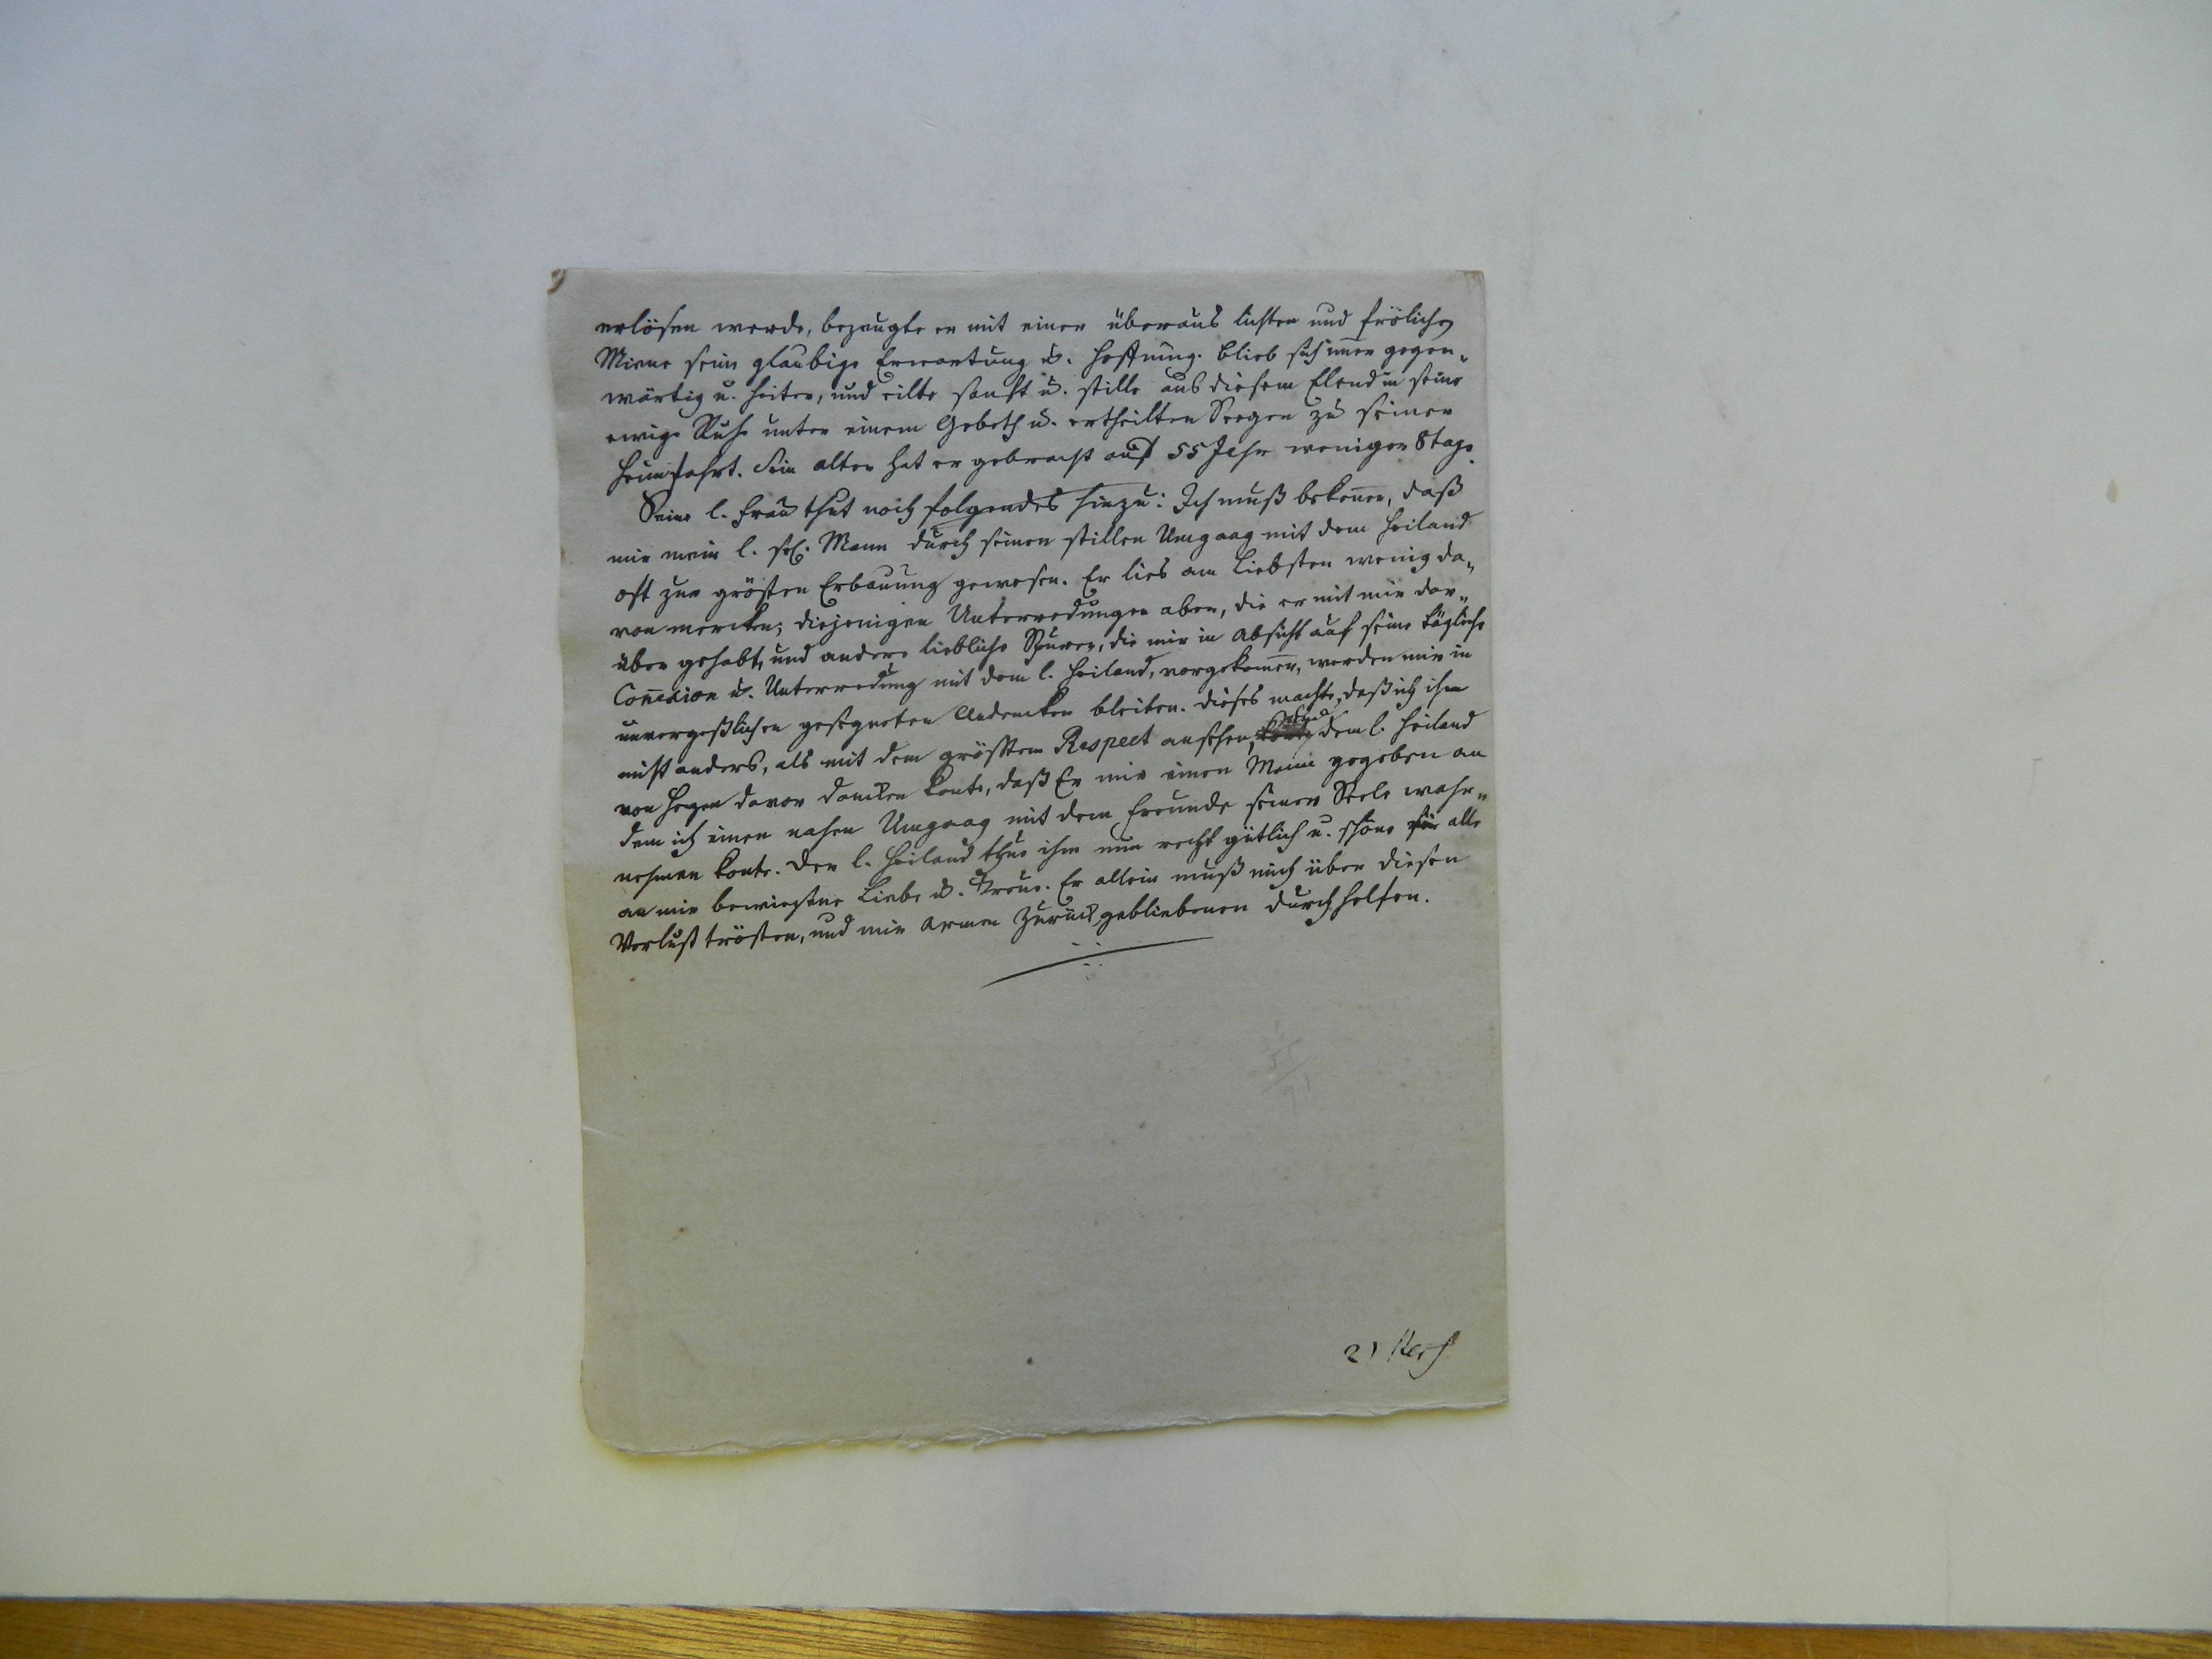 erlösen werde, bezeugte er mit einer überaus lichten und frölichen
Miene seine glaubige Erwartung u. Hoffnung. blieb sich im̄er gegen„
wärtig u. heiter, und eilte sanft u. stille aus diesem Elend in seine
ewige Ruhe unter einem Gebeth u. ertheilten Seegen zu seiner
Heimfahrt. Sein alter hat er gebracht auf 55 Jahr weniger 8 tage.
Seine l. Frau thut noch folgendes hinzu: Ich muß beken̄en, daß
mir mein l. sel. Mann durch seinen stillen Umgang mit dem Heiland
oft zur grösten Erbauung gewesen. Er lies am Liebsten wenig da„
von mercken; diejenigen Unterredungen aber, die er mit mir dar„
über gehabt, und andere liebliche Spuren, die mir in Absicht auf seine tägliche
Con̄exion u. Unterredung mit dem l. Heiland, vorgekom̄en, werden mir in
unvergeßlichen gesegneten Andencken bleiben. Dieses machte, daß ich ihn
nicht anders, als mit dem grösten Respect ansehen, und dem l. Heiland
von Herzen davor dancken konte, daß Er mir einen Mann gegeben an
dem ich einen nahen Umgang mit dem Freunde seiner Seele wahr„
nehmen konte. Der l. Heiland thue ihm nun recht gütlich u. schöne für alle
an mir bewiesene Liebe u. Treue. Er allein muß mich über diesen
Verlust trösten, und mir armen Zurückgebliebenen durchhelfen.